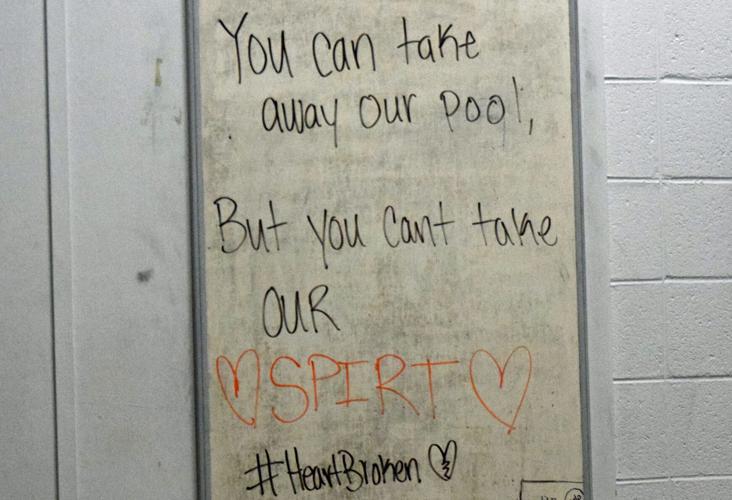 You can take
away our pool,
But you cant take
OUR
♡SPIRT♡
#HeartBroken